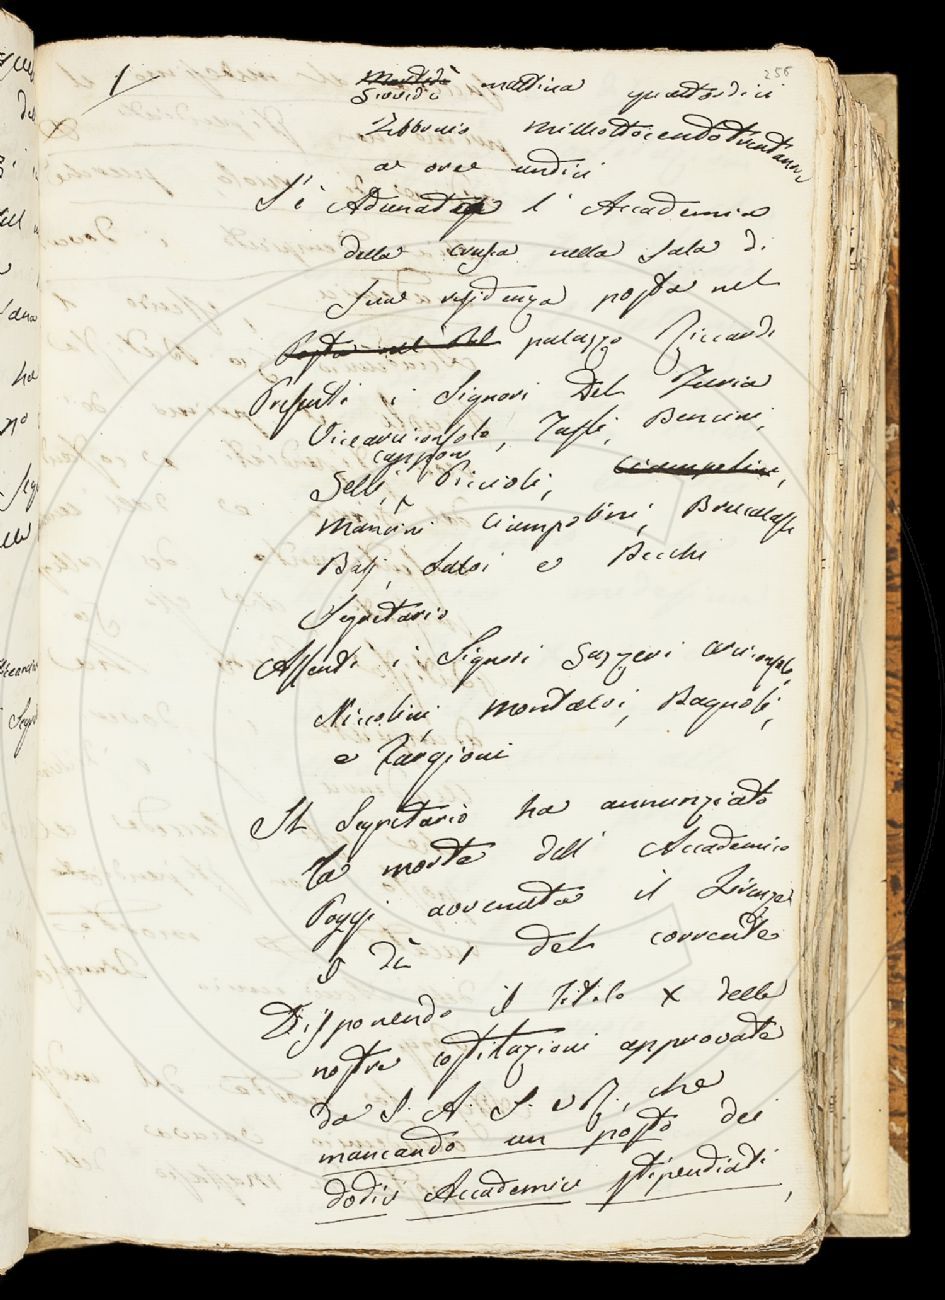 256
1
Martedì
Giovedì mattina quattordici
Febbraio milleottocentotrentanove
a ore undici
S'è Adunata l'Accademia
della Crusca nella Sala di
sua residenza posta nel
posta nel Pal palazzo Riccardi
Presenti i Signori Del Furia
Vicearciconsolo, Taffi, Bencini,
Capponi
Selli, Piccioli, Ciampolini,
Mancini Ciampolini, Brucalassi
Basi, Salvi e Becchi
Segretario
Assenti i Signori Gazzeri arciconsolo,
Niccolini, Montalvi, Bagnoli,
e Targioni
Il Segretario ha annunziato
la morte dell'Accademico
Poggi avvenuta il Firenze
il dì 1 del corrente
Disponendo il Titolo X delle
nostre costituzioni approvate
da S. A. I. e R., che
mancando un posto dei
dodici Accademici stipendiati,